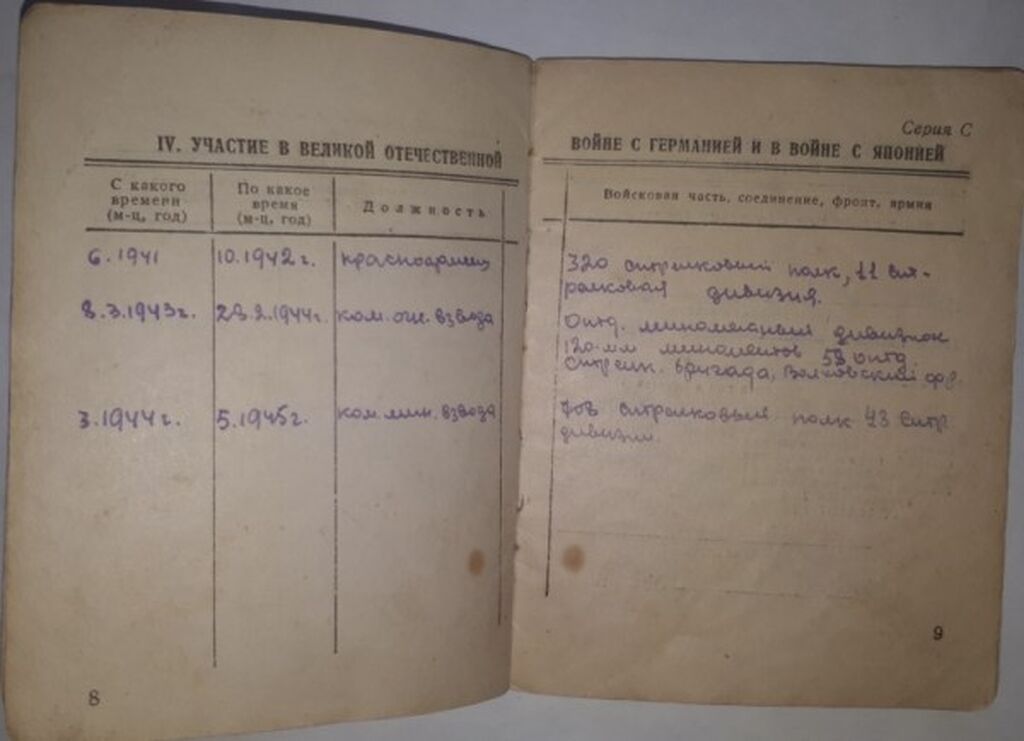 IV. УЧАСТИЕ В ВЕЛИКОЙ ОТЕЧЕСТВЕННОЙ
С какого времени (м-ц, год)
По какое время (м-ц, год)
Должность
6.1941 10.1942г. красноармеец
8.3.1943г. 28.2.1944г. ком. огн. взвода
3.1944г. 5.1945г. ком. мин. взвода
8
Серия С
ВОЙНЕ С ГЕРМАНИЕЙ И В ВОЙНЕ С ЯПОНИЕЙ
Войсковая часть, соединение, фронт, армия
320 стрелковый полк, 11 ст-
релковая дивизия.
Отд. минометный дивизион
120-мм минометов 58 отд.
стрелк. бригада, Волховский фр.
708 стрелковый полк 43 стр.
дивизии.
9